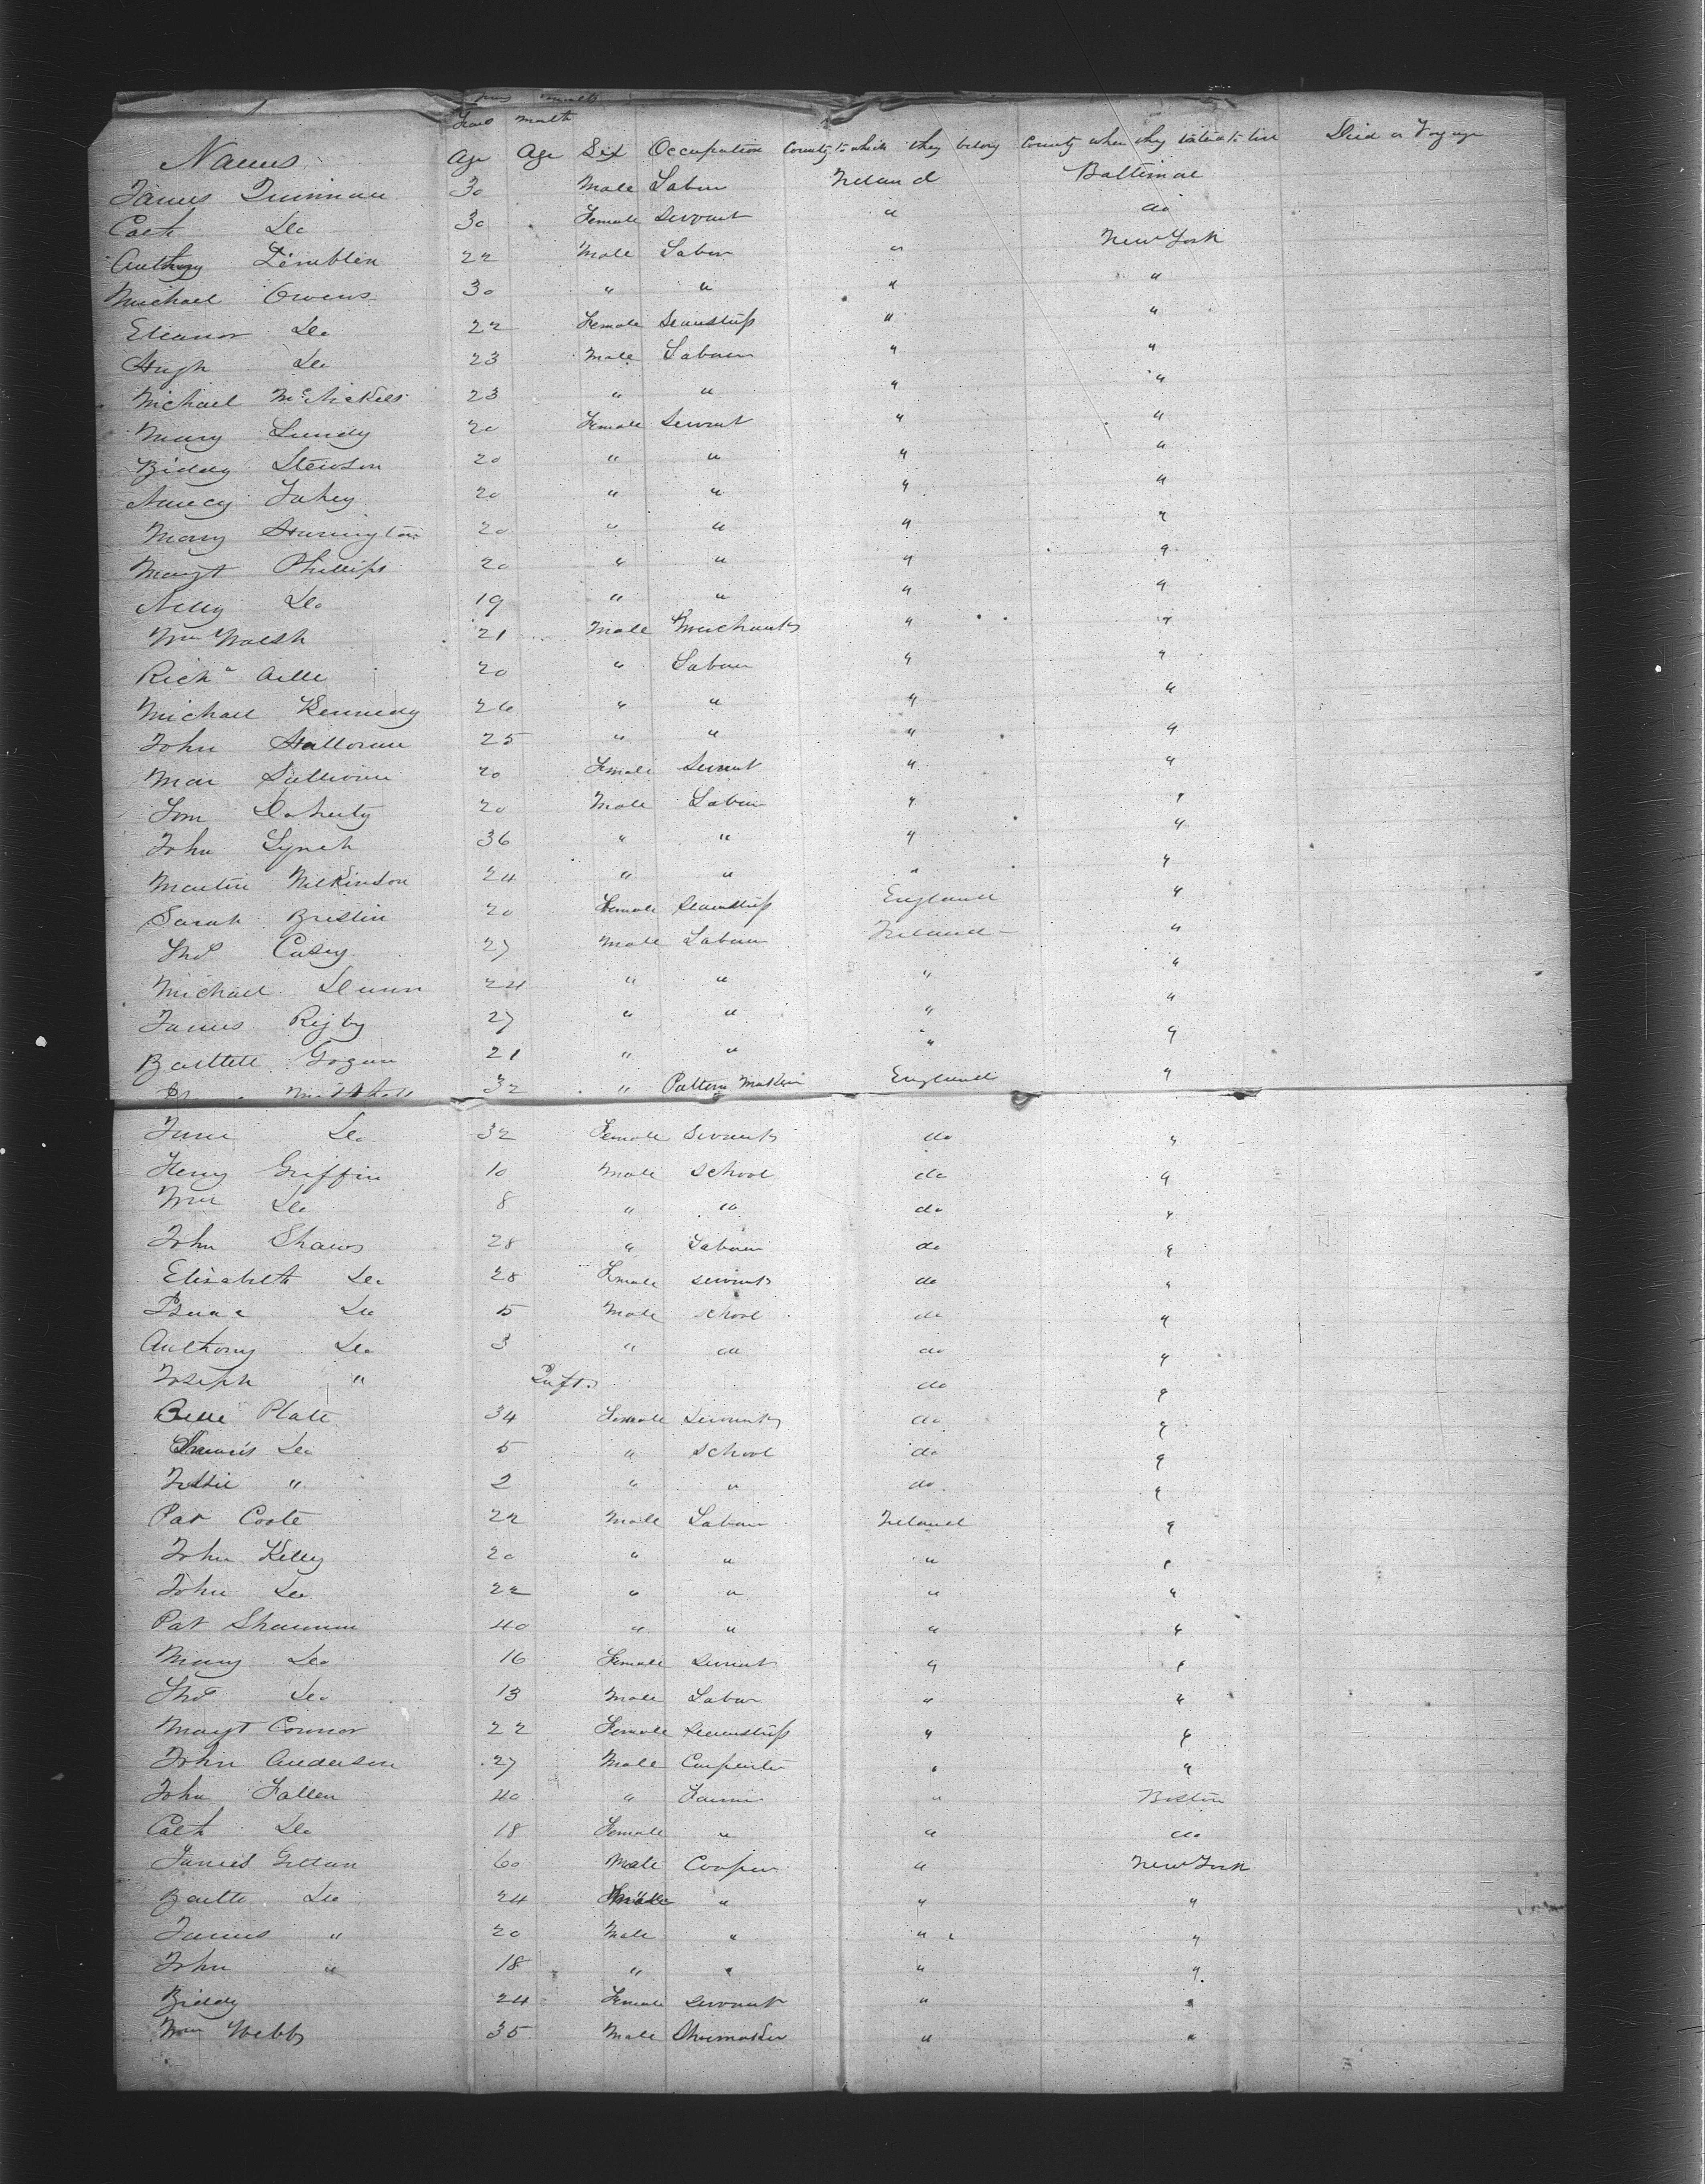 Years Month
Names Age Age Sex Occupation County to which they belong County where they intend to live Died on Voyage
James Quinnan 30 Male Labour Ireland Baltimore
Cath Do 30 Female Servant " do
Anthony 22 Male Labour " New York
Michael Owens 30 " " " "
Eleanor Do 22 Female Seamstress " "
Hugh Do 23 Male Labourer " "
Michael 23 " " " "
Mary Lundy 20 Female Servant " "
Biddy Stewson 20 " " " "
Nancy Fahey 20 " " " "
Mary Harrington 20 " " " "
Margt Phillips 20 " " " "
Nelly Do 19 " " " "
Wm Walsh 21 Male Merchants " "
Richd 20 " Labour " "
Michael Kennedy 26 " " " "
John Halloran 25 " " " "
Mar Sullivan 20 Female Servant " "
Tom Doherty 20 Male Labour " "
John Lynch 36 " " " "
Martin Wilkinson 24 " " " "
Sarah Breslin 20 Female Seamstress England "
Thos Casey 27 Male Labour Ireland "
Michael Dunn 24 " " " "
James Rigby 27 " " " "
Bartlett Gogan 21 " " " "
32 " Pattern Maker England "
Jane Do 32 Female Servants do "
Henry Griffin 10 Male School do "
Wm Do 8 " " do "
John Shaws 28 " Labour do "
Elisabeth Do 28 Female servants do "
Isaac Do 5 Male school do "
Anthony Do 3 " " do "
Joseph " Inft. do "
Platt 34 Female Servants do "
Do 5 " School do "
" 2 " " do "
Pat Coote 22 Male Labour Ireland "
John Kelly 20 " " " "
John Do 22 " " " "
Pat Shannon 40 " " " "
Mary Do 16 Female Servant " "
Thos Do 13 Male Labour " "
Margt Connor 22 Female Seamstress " "
John Anderson 27 Male Carpenter " "
John Fallen 40 " Farmer " Boston
Cath Do 18 Female " " do
James 60 Male Cooper " New York
Do 24 " " "
James " 20 Male " " "
John " 18 " " " "
Biddy 24 Female Servant " "
Wm Webb 35 Male Shoemaker " "